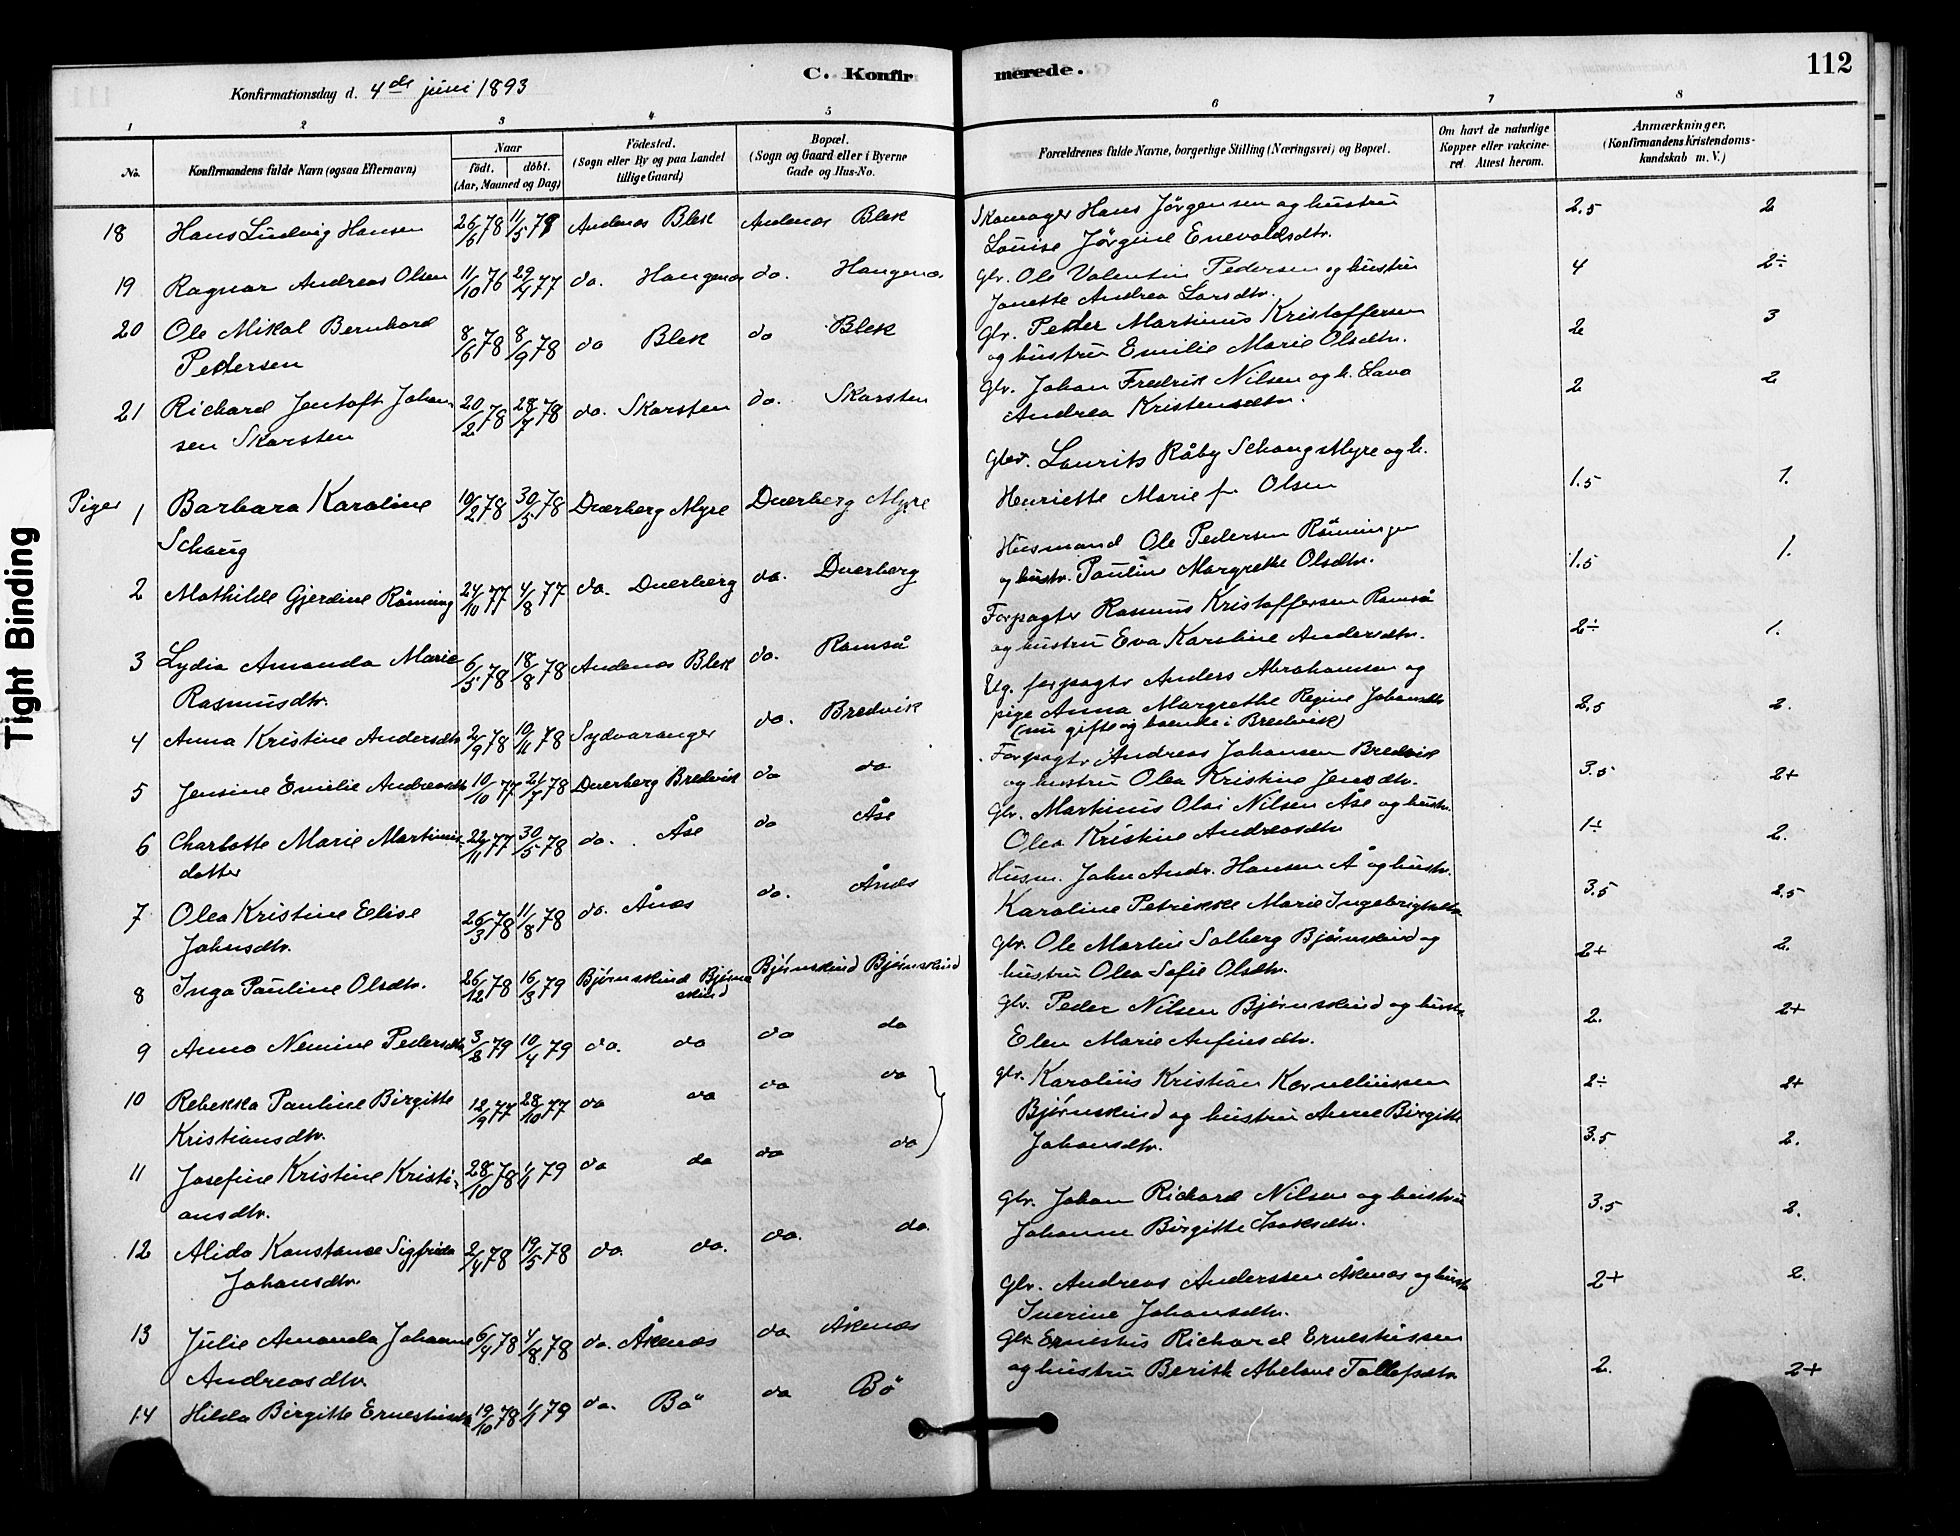 C. Konfirmerede.
112
Konfirmationsdag d. 4de juni 1893
1 2 3 4 5 6 7 8
No.
Konfirmandens fulde Navn (ogsaa Efternavn)
Naar
födt. döbt.
(Aar, Maaned og Dag)
Födested.
(Sogn eller By og paa Landet
tillige Gaard)
Bopæl.
(Sogn og Gaard eller i Byerne
Gade og Hus-No.
Forældrenes fulde Navne, borgerlige Stilling (Næringsvei) og Bopæl.
Om havt de naturlige
Kopper eller vakcine-
ret. Attest herom.
Anmærkninger.
(Konfirmandens Kristendoms-
kundskab m. V.)
18 Hans Ludvig Hansen 26/6 78 11/5 79 Andenæs Blek Andenæs Blek Skomager Hans Jörgensen og hustru 2.5 2
Louise Jørgine Enevoldsdtr.
19 Ragnar Andreas Olsen 11/10 76 29/4 77 do. Haugenæs do. Haugenæs Gbr. Ole Valentin Pedersen og hustru 4 2÷
Janette Andrea Larsdtr.
20 Ole Mikal Bernhard 8/6 78 8/9 78 do Blek do Blek Gbr. Petter Martinus Kristoffersen 2 3
Pettersen og hustru Emilie Marie Olsdtr.
21 Richard Jentoft Johan- 20/2 78 28/7 78 do. Skarsten do. Skarsten Gbr. Johan Fredrik Nilsen og h. Lava 2 2
sen Skarsten Andrea Kristensdtr.
Gbr. Laurits Råby Schaug Myre og h.
Piger 1 Barbara Karoline 10/2 78 30/5 78 Dverberg Myre Dverberg Myre Henriette Marie f. Olsen 1.5 1.
Schaug
Husmand Ole Pedersen Rönningen
2 Mathilde Gjerdine Rönning 24/10 77 4/8 77 do. Dverberg do. Dverberg og hustr. Pauline Margrethe Olsdtr. 1.5 1.
Forpagter Rasmus Kristoffersen Ramså
3 Lydia Amanda Marie 6/5 78 18/8 78 Andenæs Blek do. Ramså og hustru Eva Karoline Andersdtr. 2÷ 1.
Rasmusdtr.
Ug. forpagtr Anders Abrahamsen og
4 Anna Kristine Andersdtr 2/9 78 10/11 78 Sydvaranger do. Bredvik pige Anna Margrethe Regine Johansdtr 2.5 2.
(nu gifte og boende i Bredvik)
Forpagtr Andreas Johansen Bredvik
5 Jensine Emilie Andreasdtr 10/10 77 21/7 78 Dverberg Bredvik do do og hustru Olea Kristine Jensdtr. 3.5 2+
Gbr. Martinus Olai Nilsen Åse og hustr.
6 Charlotte Marie Martinus- 22/11 77 30/5 78 do. Åse do Åse Olea Kristine Andreasdtr 1÷ 2.
datter
Husm. John Andr. Hansen Å og hustr.
7 Olea Kristine Elise 26/3 78 11/8 78 do. Ånæs do. Ånæs Karoline Petrikke Marie Ingebrigtsdtr 3.5 2.5
Johnsdtr.
Gbr. Ole Martin Solberg Bjørnskind og 2+ 2.
8 Inga Pauline Olsdtr. 26/12 78 16/3 79 Bjørnskind Bjørnskind Bjørnskind Bjørnskind hustru Olea Sofie Olsdtr.
Gbr. Peder Nilsen Bjørnskind og hustr.
9 Anna Nemine Pedersdtr 3/2 79 10/4 79 do. do do do Elen Marie Anfinsdtr. 2. 2+
10 Rebekka Pauline Birgitte 12/9 77 28/10 77 do do do do Gbr. Karolius Kristian Korneliussen 2÷ 2+
Kristiansdtr. Bjørnskind og hustru Anne Birgitte
11 Josefine Kristine Kristi- 28/10 78 1/1 79 do do do do Johansdtr. 3.5 2.
ansdtr.
Gbr. Johan Richard Nilsen og hustru
12 Alida Konstanse Sigfrida 2/4 78 19/5 78 do. do. do. do. Johanne Birgitte Isaksdtr. 3.5 2.
Johansdtr.
Gbr. Andreas Anderssen Åkenæs og hustr
13 Julie Amanda Johanne 6/4 78 4/8 78 do. Åkenæs do. Åkenæs Inerine Johansdtr. 2+ 2.
Andreasdtr.
Gbr. Ernestus Richard Ernestussen
14 Hilda Birgitte Ernestusdtr 19/10 78 1/1 79 do. Bö do Bö og hustru Berith Abelone Tollefsdtr 2. 2+
Tight Binding